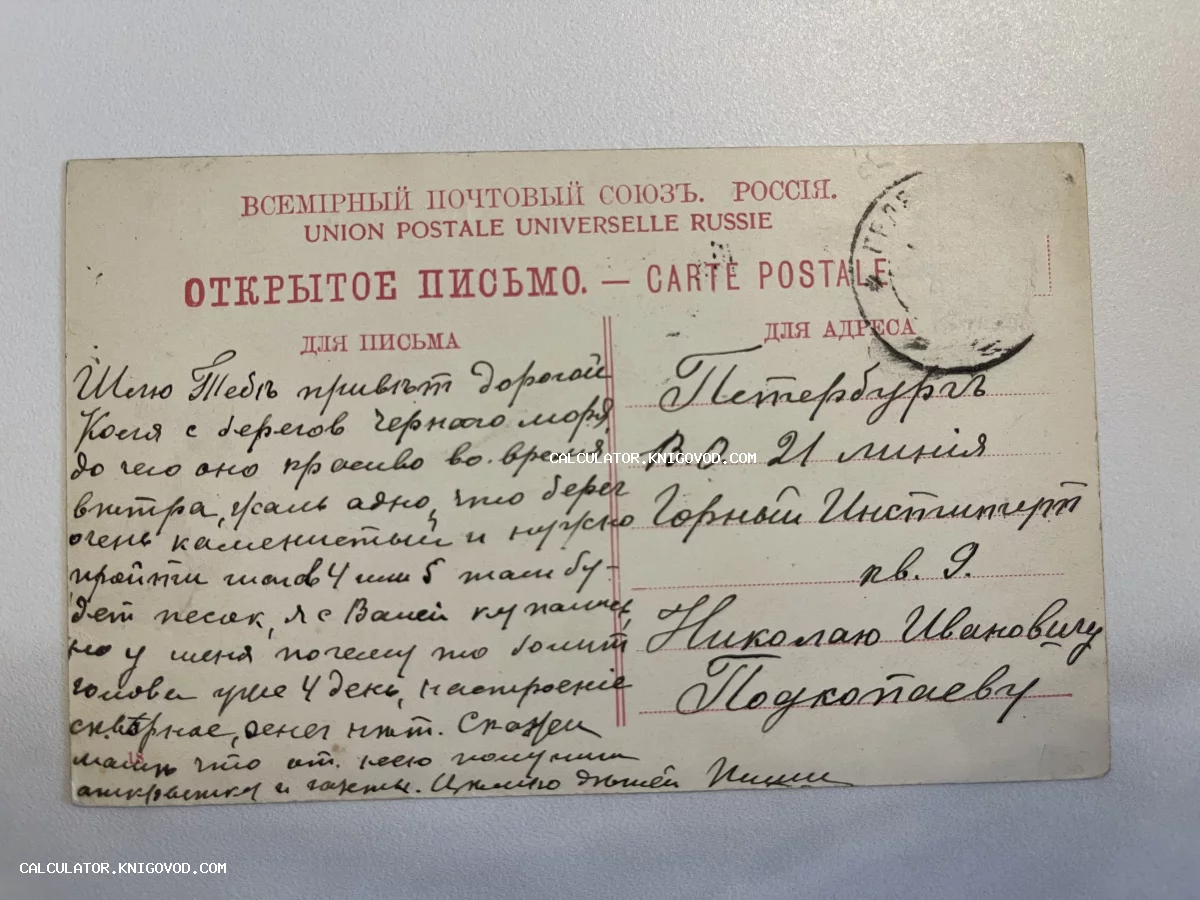 ВСЕМІРНЫЙ ПОЧТОВЫЙ СОЮЗЪ. РОССІЯ.
UNION POSTALE UNIVERSELLE RUSSIE
ОТКРЫТОЕ ПИСЬМО. — CARTE POSTALE
ДЛЯ ПИСЬМА
Шлю Тебѣ привѣт дорогой
Коля с берегов Чернаго моря,
до чего оно красиво во время
вѣтра, жаль одно, что берег
очень каменистый и нужно
пройти шагов 4 или 5 там бу-
дет песок, я с Ваней купались,
но у меня почему то болит
голова уже 4 день, настроеніе
скверное, денег нѣт. Скажи
маме что от нея получили
открытку и газеты. Целую Пиши
18
ДЛЯ АДРЕСА
Петербургъ
В О 21 линія
Горный Институт
кв. 9.
Николаю Ивановичу
Подкопаеву
CALCULATOR.KNIGOVOD.COM
CALCULATOR.KNIGOVOD.COM